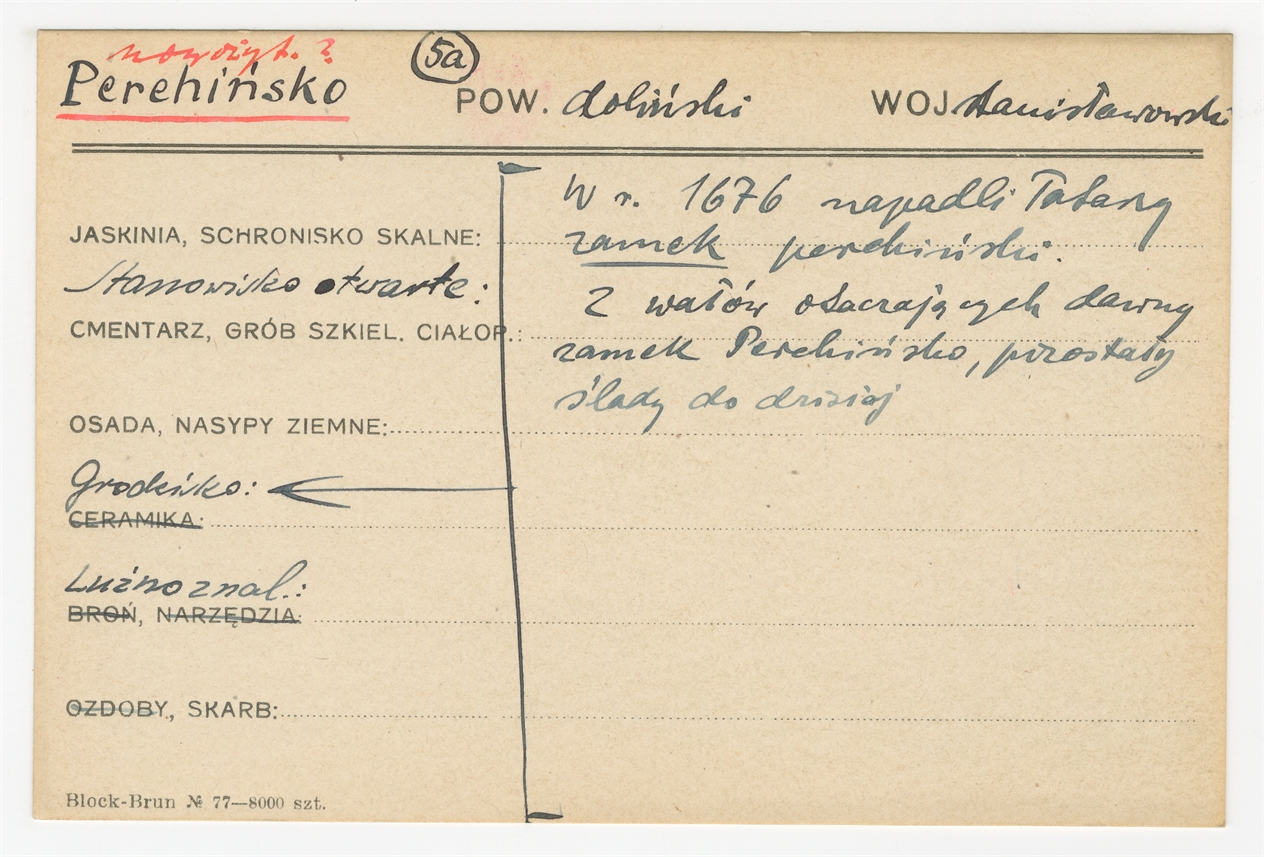 nowożyt. ?
Perehińsko
5a
POW. doliński
WOJ. stanisławowski
W r. 1676 napadli Tatarzy
zamek perehiński.
Z wałów otaczających dawny
zamek Perehińsko, pozostały
ślady do dzisiaj
JASKINIA, SCHRONISKO SKALNE:
Stanowisko otwarte:
CMENTARZ, GRÓB SZKIEL. CIAŁOP.:
OSADA, NASYPY ZIEMNE:
Grodzisko:
CERAMIKA:
Luźno znal.:
BROŃ, NARZĘDZIA:
OZDOBY, SKARB:
Block-Brun № 77—8000 szt.